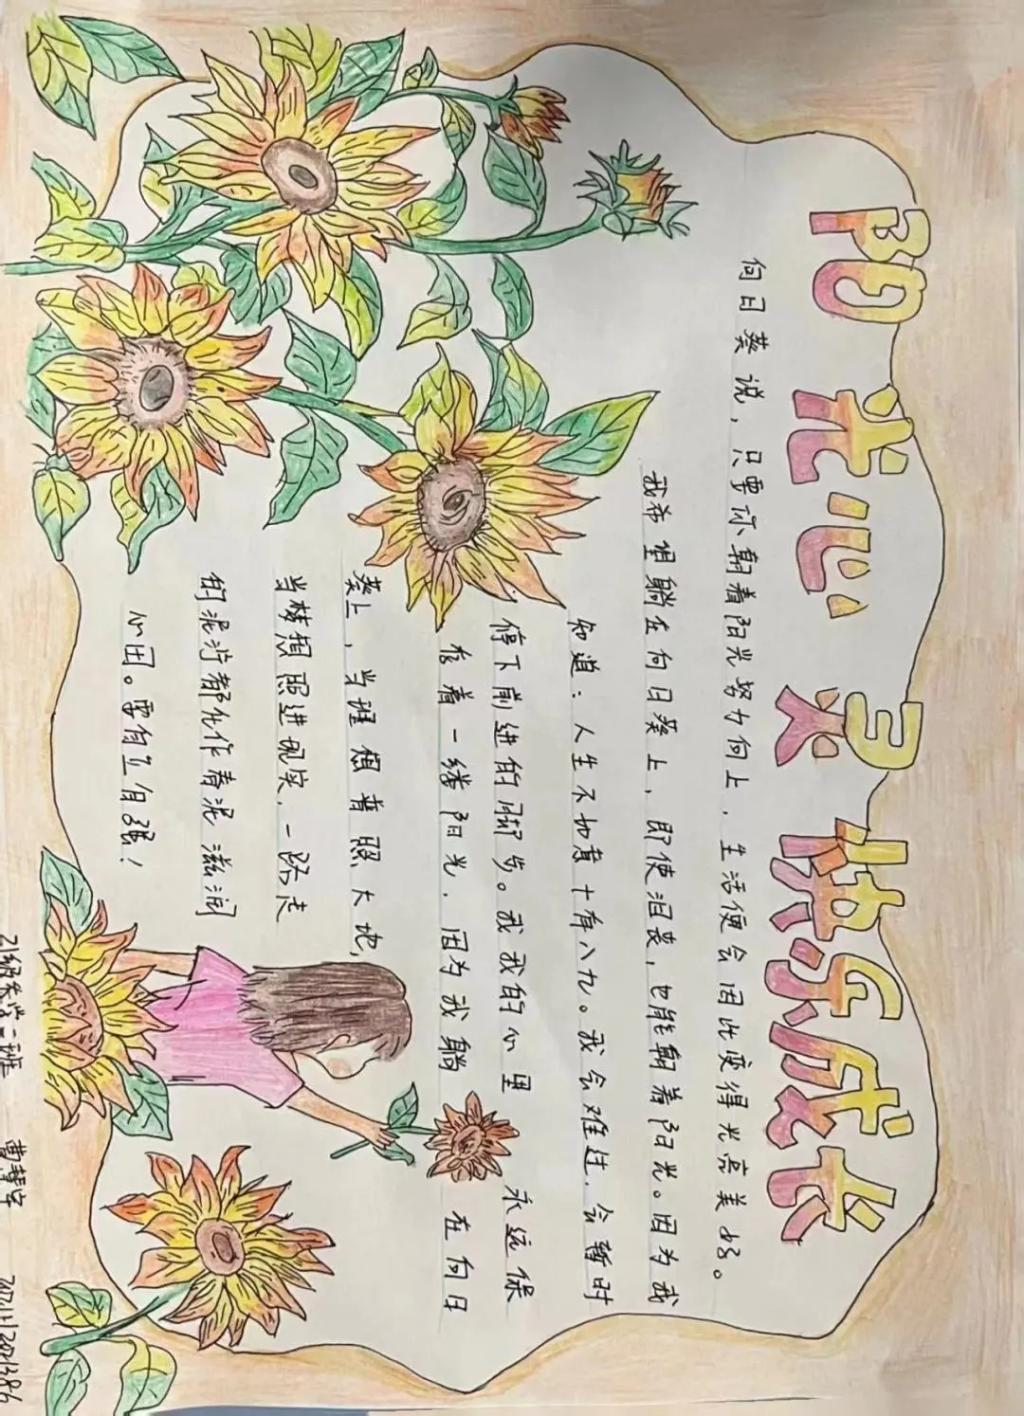 阳光心灵 快乐成长
向日葵说，只要你朝着阳光努力向上，生活便会因此变得光亮美好。
我希望躺在向日葵上，即使沮丧，也能朝着阳光。因为我
知道：人生不如意十有八九。我会难过，会暂时
停下前进的脚步。我我的心里 永远保
存着一缕阳光，因为我躺 在向日
葵上，当理想普照大地，
当梦想照进现实，一路走
的泥泞都化作春泥滋润
心田。要自立自强！
21级 二班